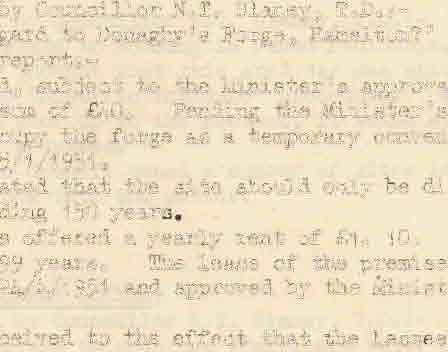 by Councillor N.T. Blaney, T.D.:-
gard to Donaghr's Forge, Ramelton?"
report.-
d, subject to the Minister's approva
sum of £40. Pending the Minister's
cupy the forge as a temporary conven
/1/1951.
ated that the site should only be di
ding 150 years.
s offered a yearly rent of £4. 10.
99 years. The lease of the premise
/1951 and approved by the Minist
ceived to the effect that the Lessee